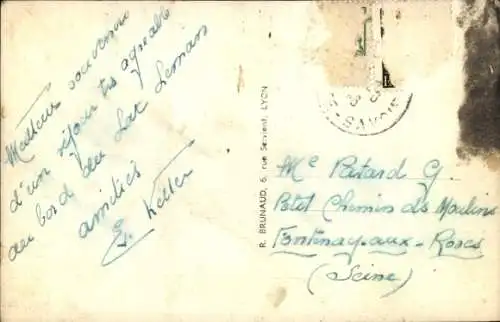 Meilleur souvenir
d'un séjour très agréable
au bord du Lac Leman
amitiés
E. Keller
R. BRUNAUD, 6, rue Servient, LYON
SAVOIE
Me Patard G.
Petit Chemin des Moulins
Fontenay-aux-Roses
(Seine)